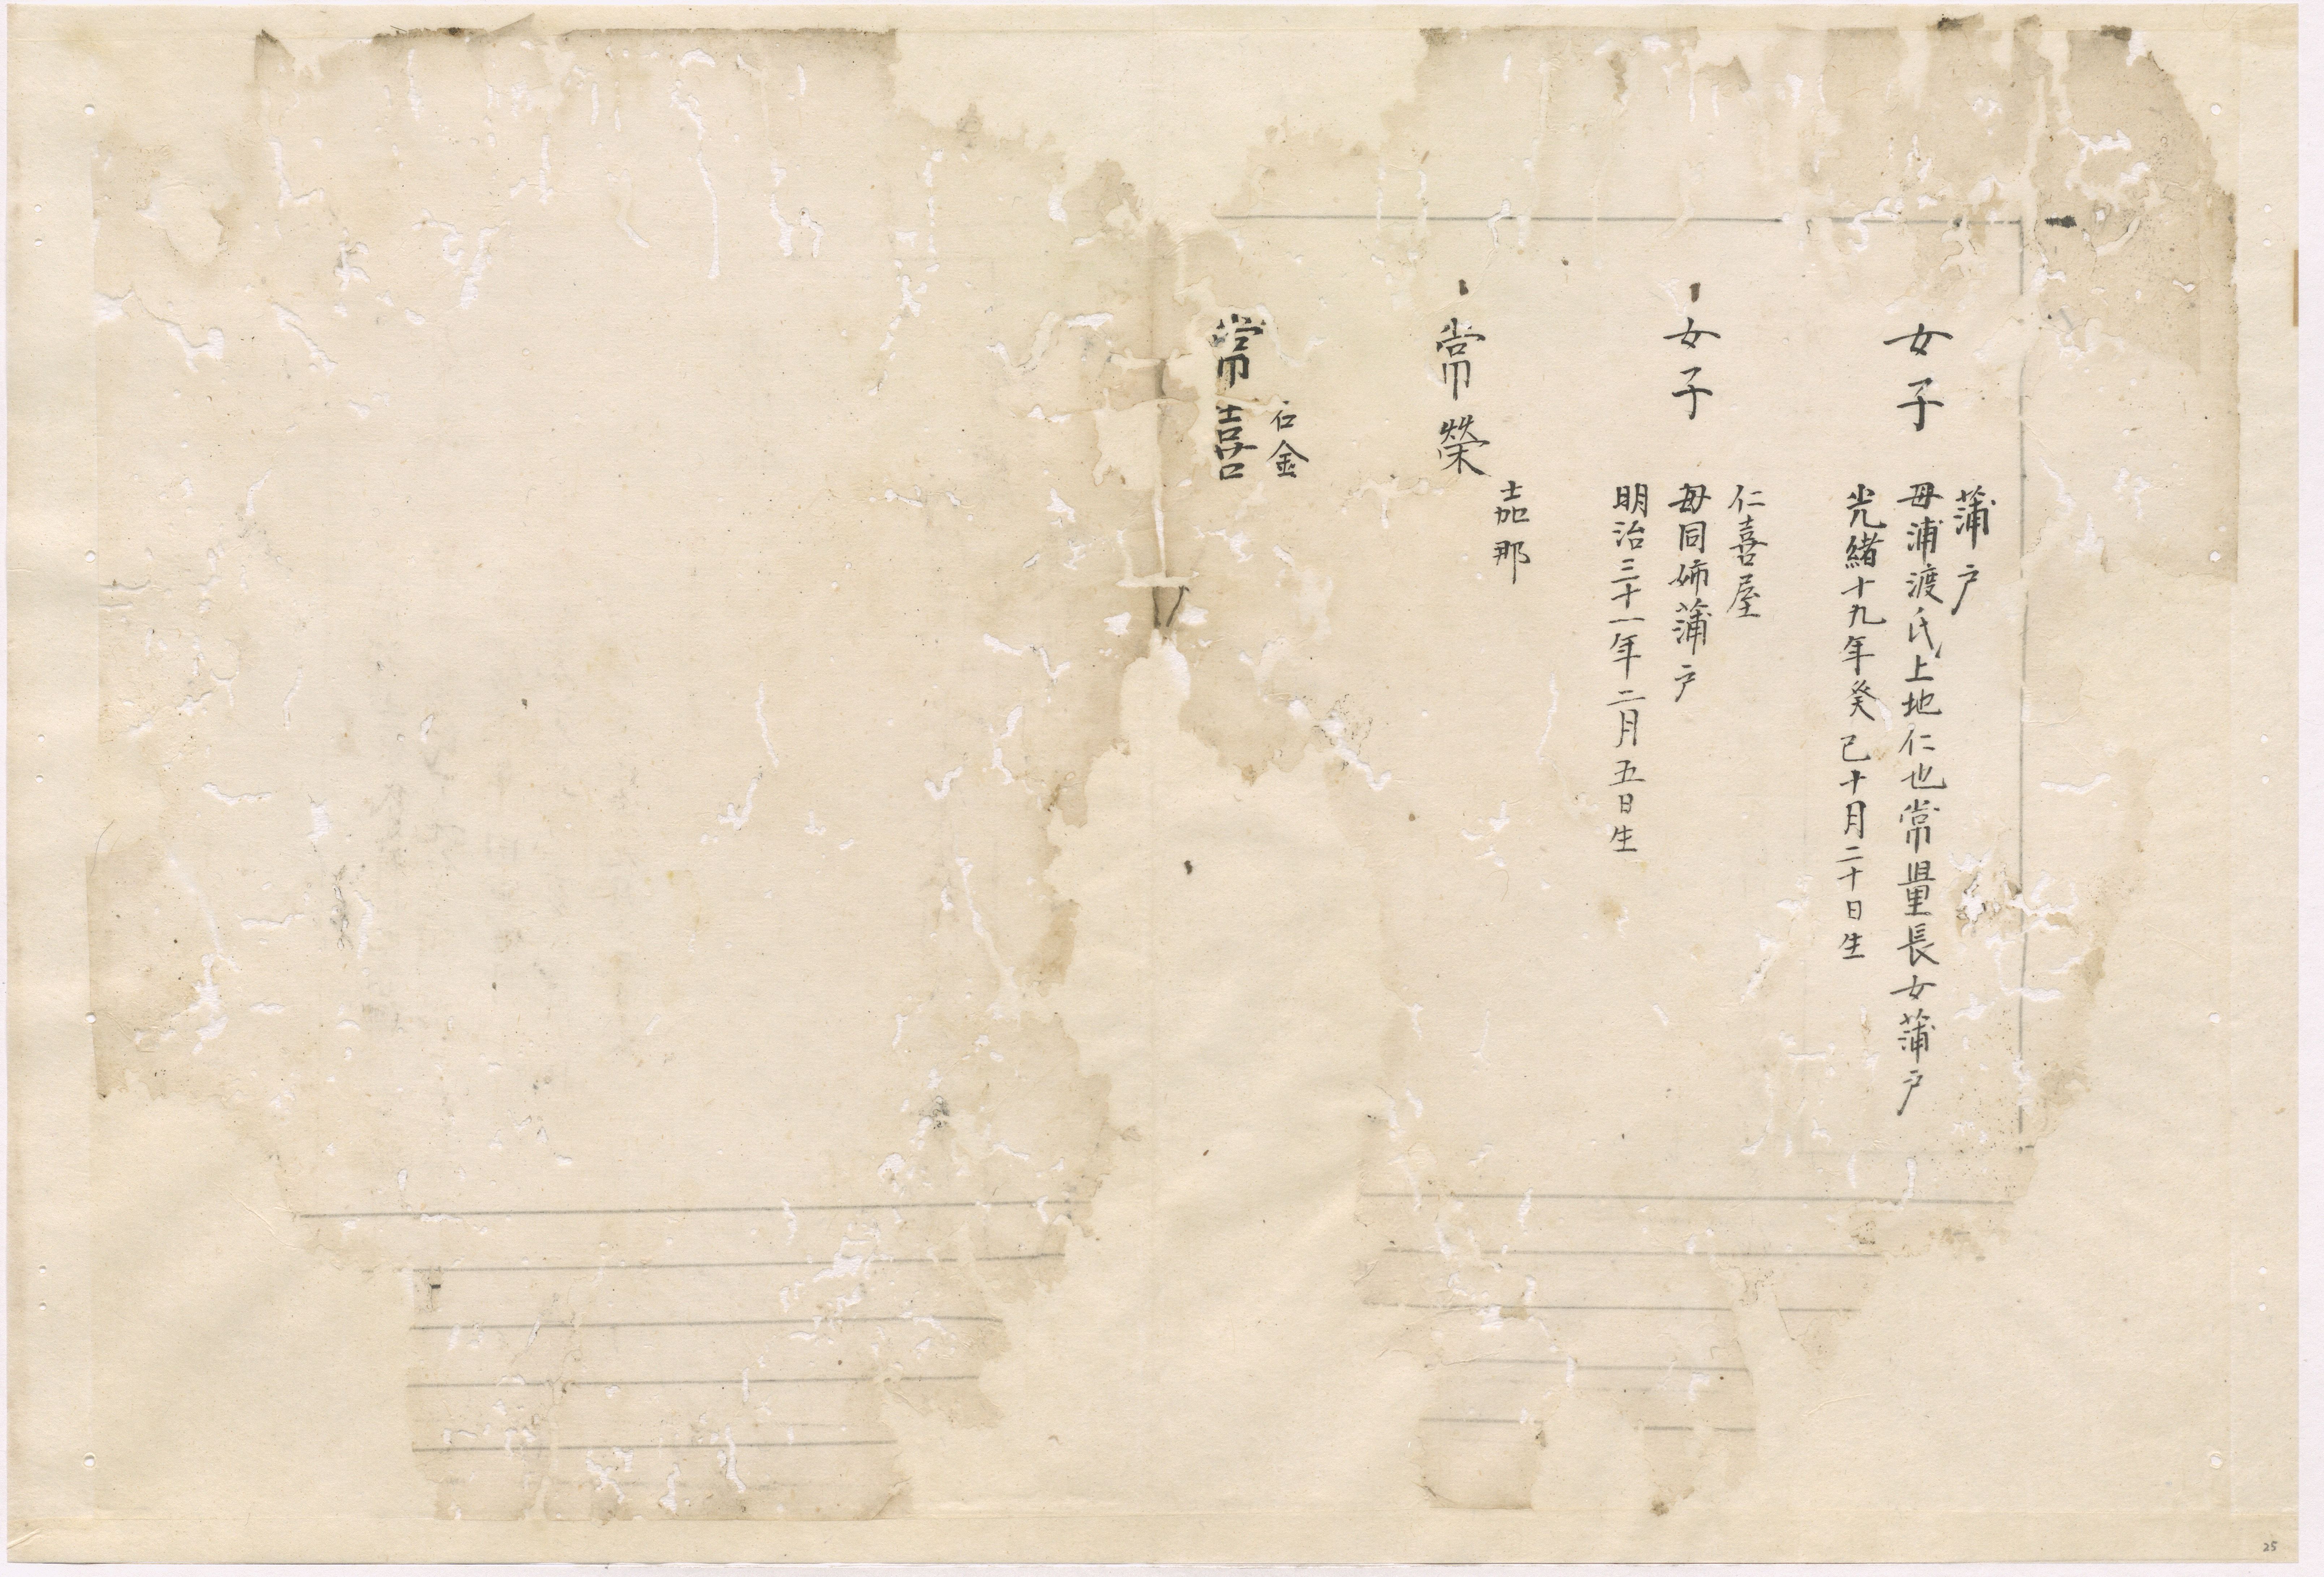 蒲戸
女子
母浦渡氏上地仁也常量長女蒲戸
光緒十九年癸已十月二十日生
仁喜屋
女子
母同姉蒲戸
明治三十一年二月五日生
嘉那
常榮
石金
常喜
25